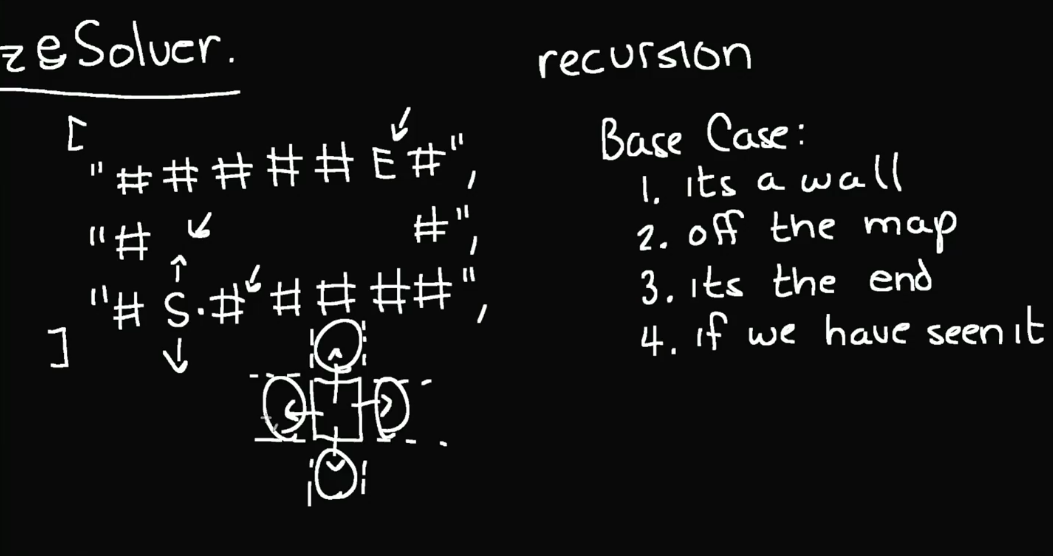 zeSolver.
recursion
[
"#####E#",
"# #",
"#S.#####",
]
Base Case:
1. its a wall
2. off the map
3. its the end
4. if we have seen it